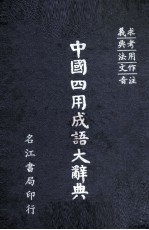 求考用作注
義典法文音
中國四用成語大辭典
名江書局印行